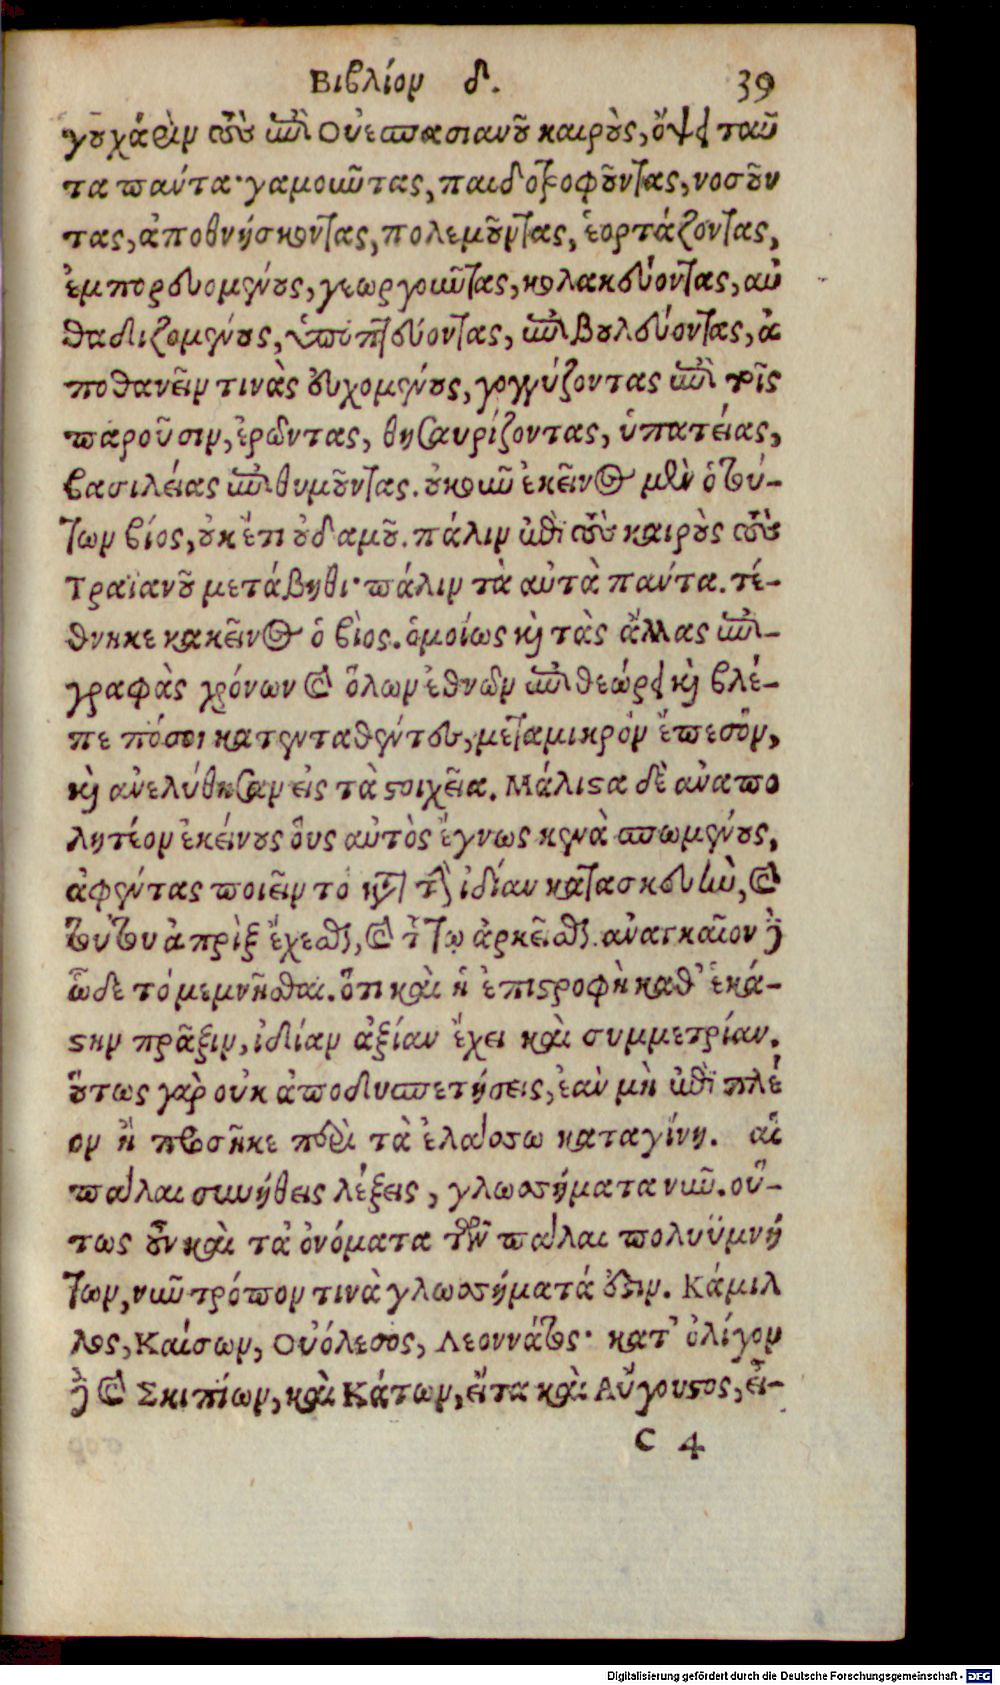 Βιβλίον δ. 39
γου χάριν τοὺς ἐπὶ Οὐεσπασιανοῦ καιροὺς, ὄψει ταῦ
τα πάντα· γαμοῦντας, παιδοτροφοῦντας, νοσοῦν
τας, ἀποθνήσκοντας, πολεμοῦντας, ἑορτάζοντας,
ἐμπορευομένους, γεωργοῦντας, κολακεύοντας, αὐ
θαδιζομένους, ὑποπτεύοντας, ἐπιβουλεύοντας, ἀ
ποθανεῖν τινὰς εὐχομένους, γογγύζοντας ἐπὶ τοῖς
παροῦσιν, ἐρῶντας, θησαυρίζοντας, ὑπατείας,
βασιλείας ἐπιθυμοῦντας. οὐκοῦν ἐκεῖνος μὲν ὁ τού-
των βίος, οὐκ ἔτι οὐδαμοῦ. πάλιν ἐπὶ τοὺς καιροὺς τοὺς
Τραϊανοῦ μετάβηθι· πάλιν τὰ αὐτὰ πάντα. τέ-
θνηκε κακεῖνος ὁ βίος. ὁμοίως καὶ τὰς ἄλλας ἐπι-
γραφὰς χρόνων καὶ ὅλων ἐθνῶν ἐπιθεώρει καὶ βλέ-
πε πόσοι κατενταθέντες, μετα μικρὸν ἔπεσον,
καὶ ἀνελύθησαν εἰς τὰ στοιχεῖα. Μάλιστα δὲ ἀναπο
λητέον ἐκείνους οὓς αὐτὸς ἔγνως κενὰ σπωμένους,
ἀφέντας ποιεῖν τὸ κατὰ τὴν ἰδίαν κατασκευὴν, καὶ
τούτου ἀπρὶξ ἔχεσθαι, καὶ τούτῳ ἀρκεῖσθαι. ἀναγκαῖον δὲ
ὧδε τὸ μεμνῆσθαι. ὅτι καὶ ἡ ἐπιστροφὴ καθ’ ἑκά-
στην πρᾶξιν, ἰδίαν ἀξίαν ἔχει καὶ συμμετρίαν.
οὕτως γὰρ οὐκ ἀποδυσπετήσεις, ἐὰν μὴ ἐπὶ πλέ
ον ἢ προσῆκε περὶ τὰ ἐλάσσω καταγίνῃ. αἱ
πάλαι συνήθεις λέξεις, γλωσσήματα νῦν. οὕ-
τως οὖν καὶ τὰ ὀνόματα τῶν πάλαι πολυϋμνή
των, νῦν τρόπον τινὰ γλωσσήματά ἐστιν. Κάμιλ
λος, Καίσων, Οὐόλεσος, Λεοννάτος· κατ’ ὀλίγον
δὲ καὶ Σκιπίων, καὶ Κάτων, εἶτα καὶ Αὔγουστος, εἶ-
C 4
Digitalisierung gefördert durch die Deutsche Forschungsgemeinschaft - DFG